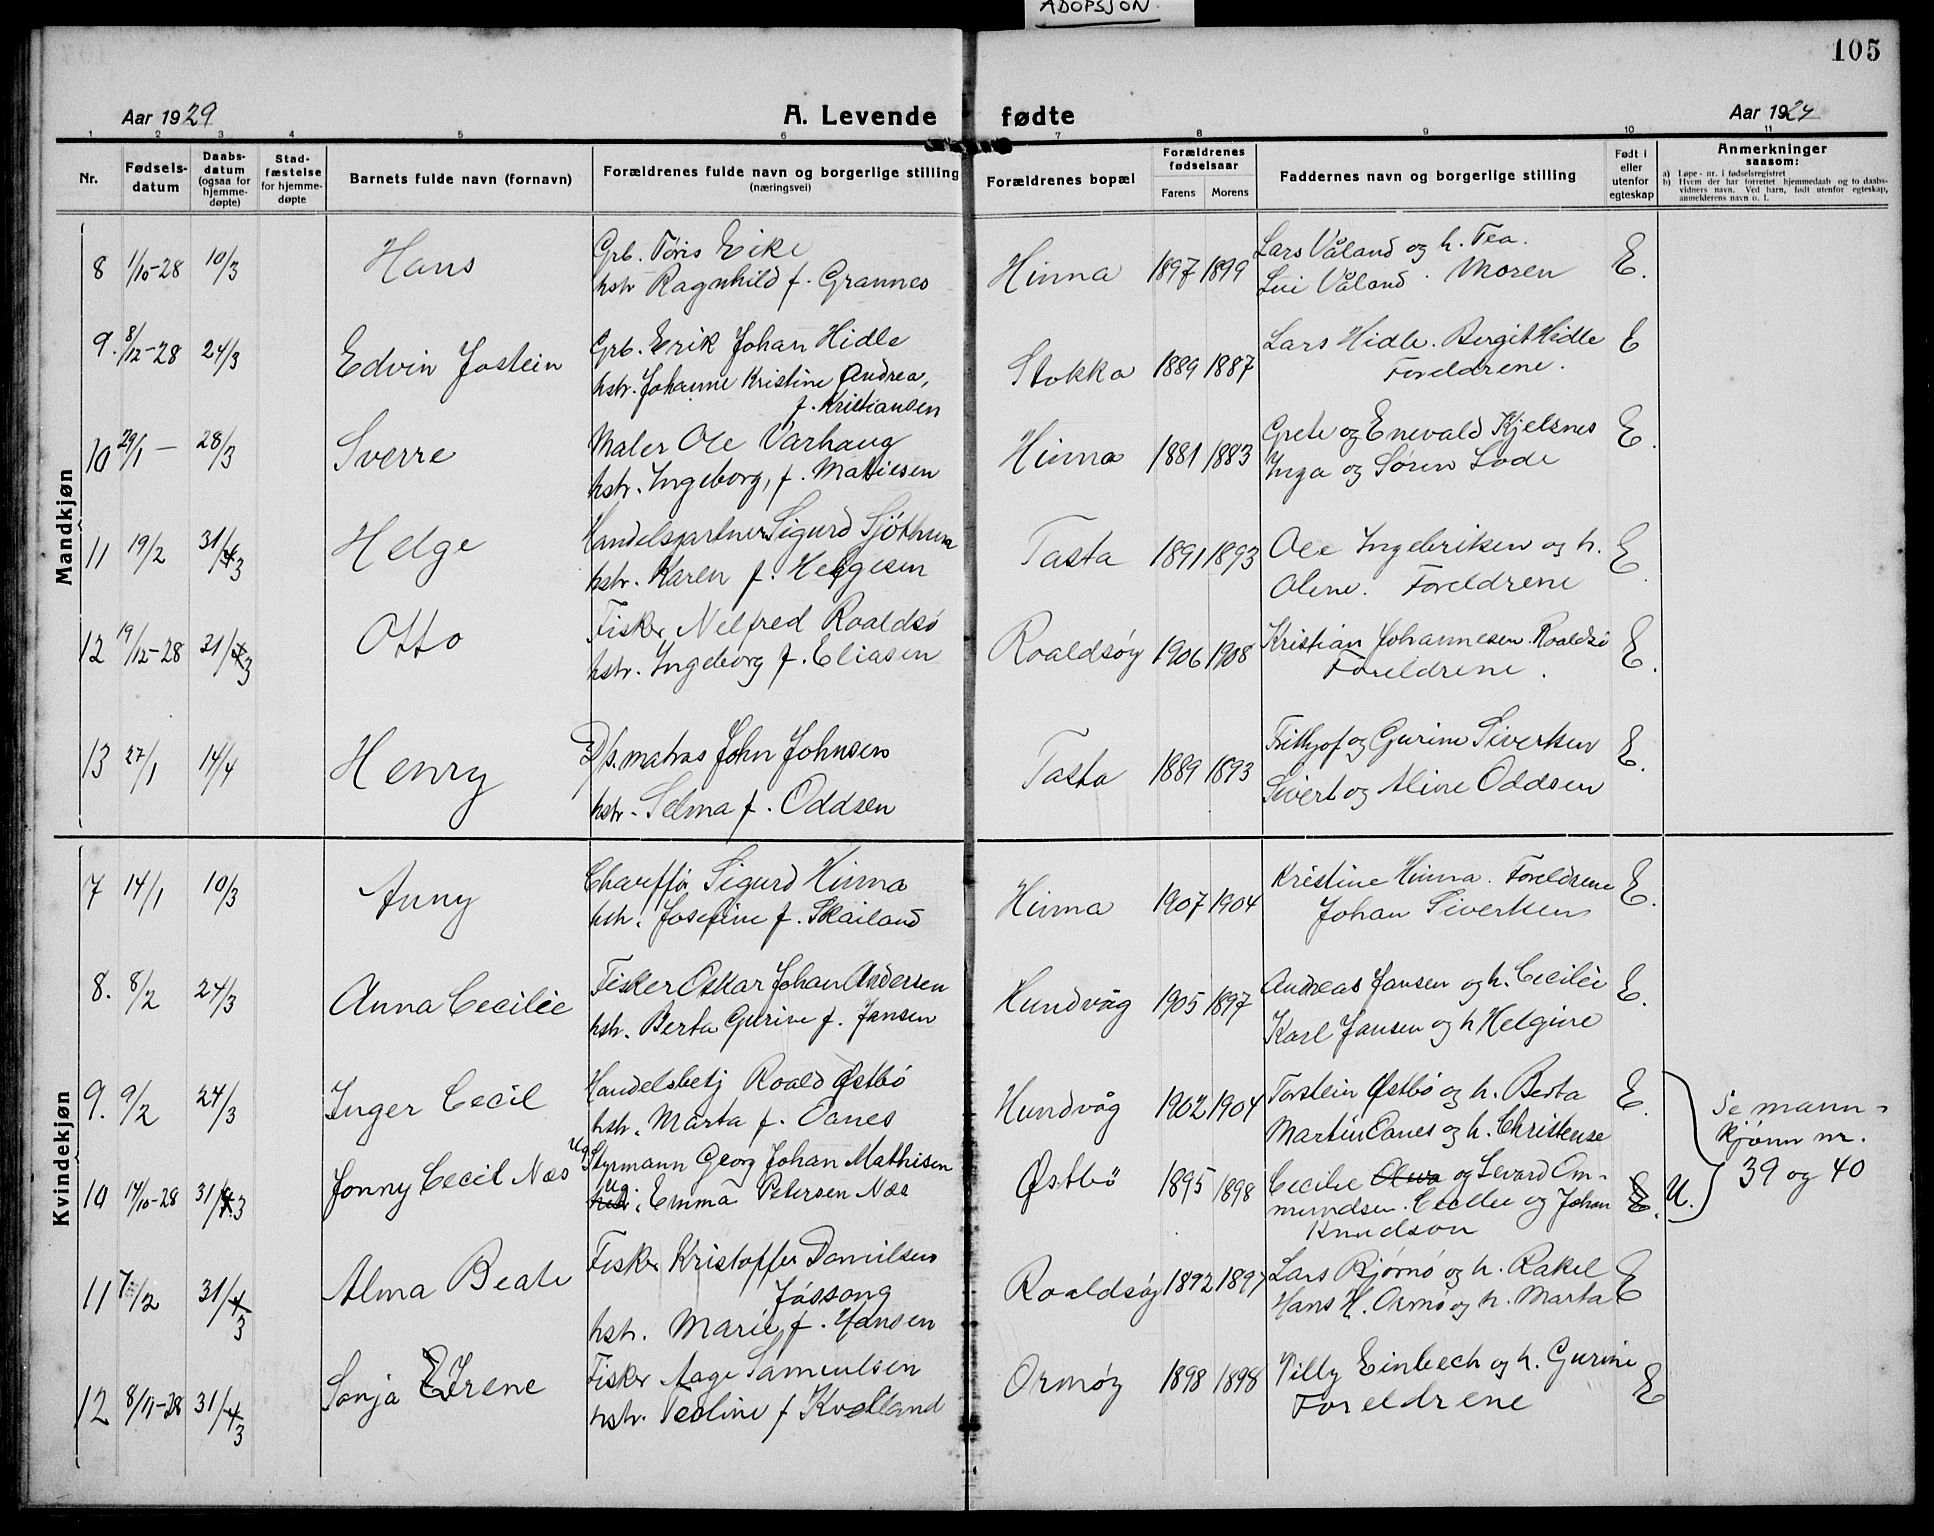 ADOPSJON.
105
Aar 1929 A. Levende fødte Aar 1929
1 2 3 4 5 6 7 8 9 10 11
Nr.
Fødsels-
datum
Daabs-
datum
(ogsaa for
hjemme-
døpte)
Stad-
fæstelse
for hjemme-
døpte
Barnets fulde navn (fornavn)
Forældrenes fulde navn og borgerlige stilling
(næringsvei)
Forældrenes bopæl
Forældrenes
fødselsaar
Farens Morens
Faddernes navn og borgerlige stilling
Født i
eller
utenfor
egteskap
Anmerkninger
saasom:
a) Løpe - nr. i fødselsregistret
b) Hvem der har forrettet hjemmedaab og to daabs-
vidners navn. Ved barn, født utenfor egteskap,
anmelderens navn o. l.
Mandkjøn
8 1/10-28 10/3 Hans
Grb. Tøris Eike
hstr Ragnhild f. Grannes
Hinna 1897 1899
Lars Våland og h. Tea.
Våland. Moren
E.
9. 8/12-28 24/3 Edvin Jostein
Grb. Erik Johan Hidle
hstr. Johanne Kristine Andrea,
f. Kristiansen
Stokka 1889 1887
Lars Hidle. Bergit Hidle
Foreldrene.
E
10 29/1 - 28/3 Sverre
Maler Ole Varhaug
hstr. Ingeborg, f. Matiesen
Hinna 1881 1883
Grete og Enevald Kjelsnes
Inga og Søren Lode
E.
11 19/2 31/4 3 Helge
Handelsgartner Sigurd Sjöthun
hstr. Karen f. Helgesen
Tasta 1891 1893
Ole Ingebriksen og h.
Oline. Foreldrene
E.
12 19/12-28 31/4 3 Otto
Fisker Nelfred Roaldsö
hstr. Ingeborg f. Eliasen
Roaldsøy 1906 1908
Kristian Johannesen Roaldsö
Foreldrene.
E.
13 27/1 14/4 Henry
D/s. matros John Johnsen
hstr. Selma f. Oddsen
Tasta 1889 1893
Fritjof og Gurine Sivertsen
Sivert og Aline Oddsen
E.
Kvindekjøn
7 14/1 10/3 Anny
Chauffør Sigurd Hinna
hstr. Josefine f. Skailand
Hinna 1907 1904
Kristine Hinna. Foreldrene
Johan Sivertsen
E.
8. 8/2 24/3 Anna Cecilie
Fisker Oskar Johan Andersen
hstr. Berta Gurine f. Jansen
Hundvåg 1905 1897
Andreas Jansen og h. Cecilie
Karl Jansen og h Helgine
E.
9. 9/2 24/3 Inger Cecil
Handelsbetj Roald Østbö
hstr. Marta f. Oanes
Hundvåg 1902 1904
Torstein Østbö og h. Berta
Martin Oanes og h. Christense
E.
10 14/10-28 31/4 3 Jonny Cecil Næs
ug. Styrmann Georg Johan Mathisen
ug. hstr. Emma Petersen Næs
Østbö 1895 1898
Cecilie Olava og Sevard Om-
mundsen. Cecilie og Johan
Knudson
E. U.
Se mann-
kjønn nr.
39 og 40
11 /2 31/4 3 Alma Beate
Fisker Kristoffer Danielsen
Jøssang
hstr. Marie f. Hansen
Roaldsøy 1892 1897
Lars Bjørnö og h. Rakel
Hans H. Ormö og h. Marta
E
12 8/11-28 31/4 3 Sonja Irene
Fisker Aage Samuelsen
hstr. Teoline f Kvalland
Ormøy 1898 1898
Villy Einbech og h. Gurine
Foreldrene
E